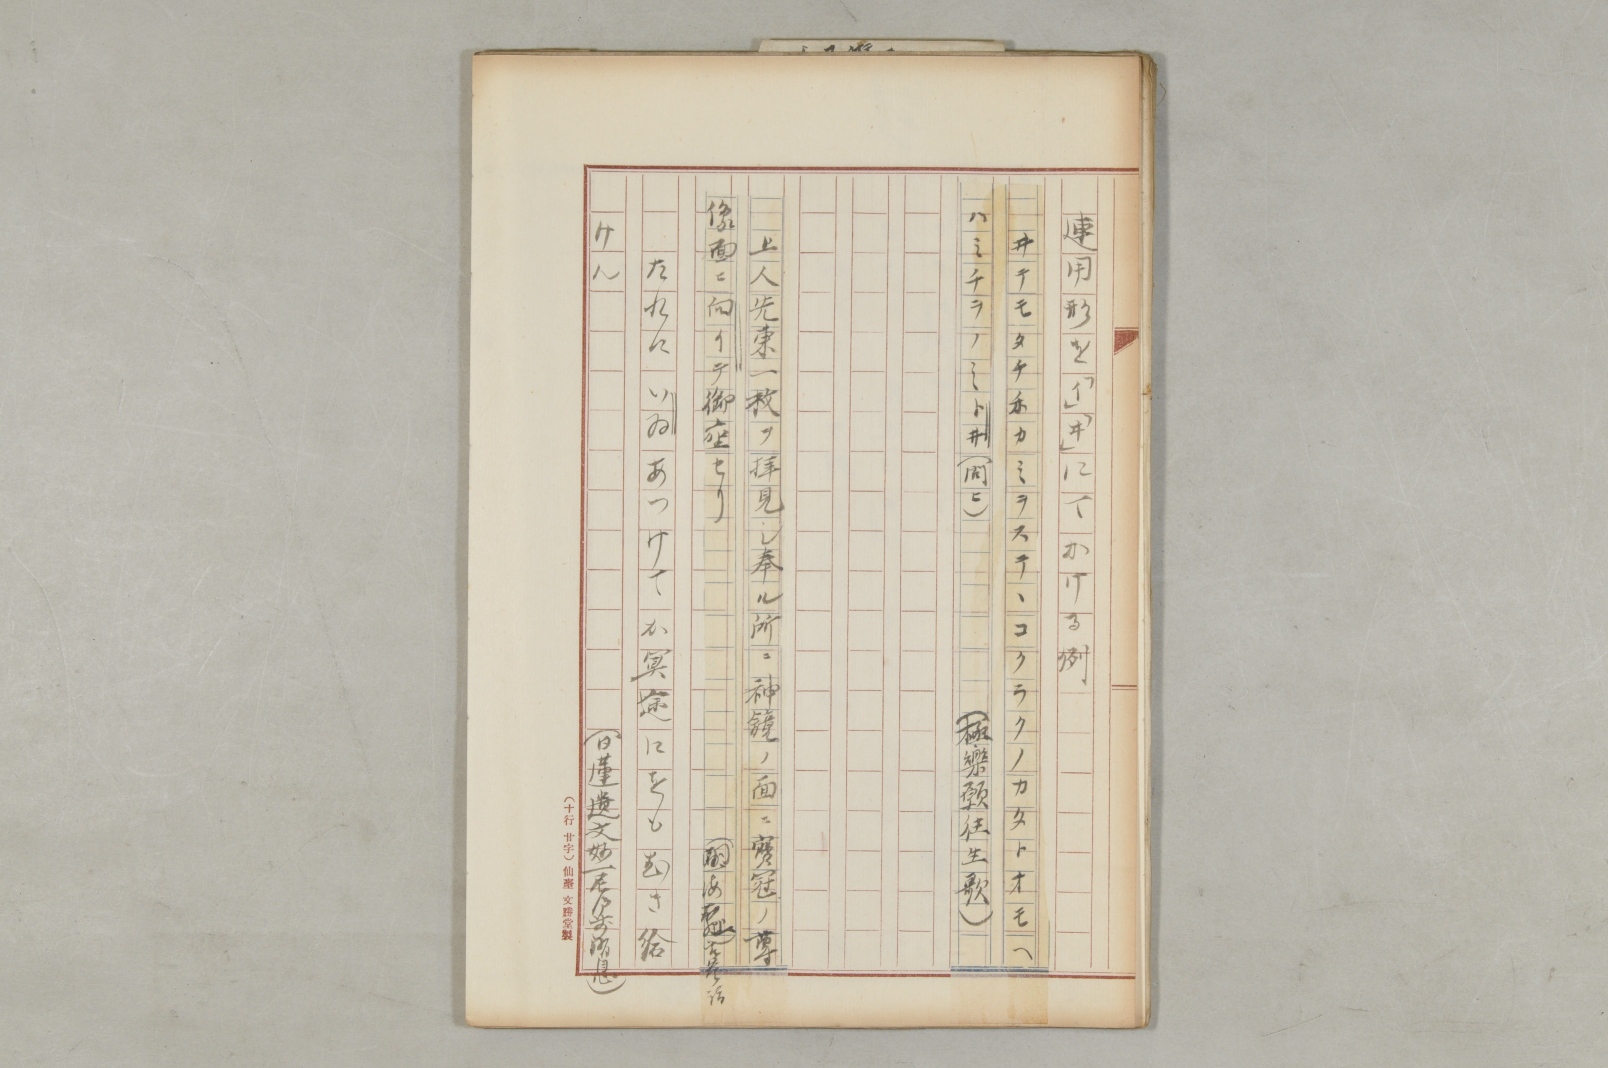 連用形を「イ」「ヰ」にてかける例
ヰテモタチ亦カミヲステヽコクラクノカタトオモヘ
ハミチヲノミトヰ(問ヒ)
(極樂願往生歌)
上人先東一枚ヲ拝見シ奉ル所ニ神鏡ノ面ニ寳冠ノ尊
像面ニ向イテ御座セリ
たれにいゐあつけてか冥途にをもむき給
けん
(日蓮遺文妙一尼御前消息)
(十行 廿字) 仙臺 文勝堂製